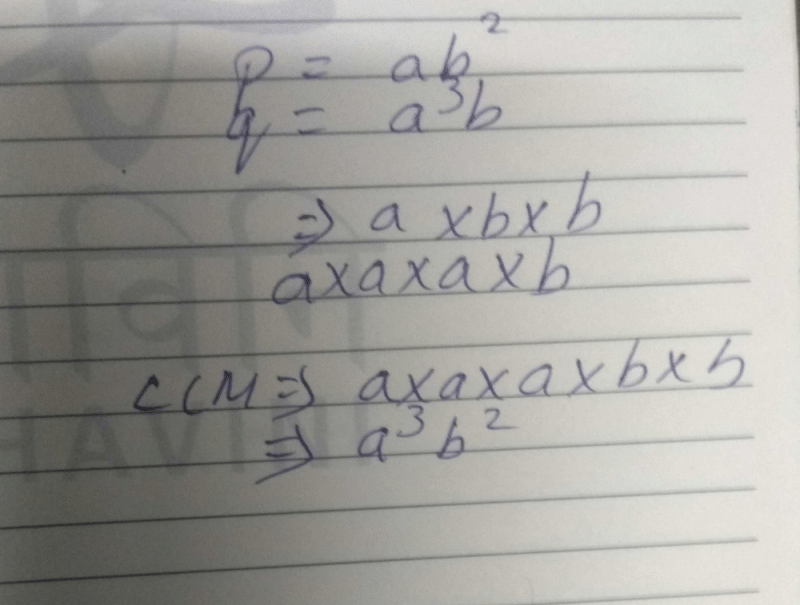 p = ab²
q = a³b
⇒ a × b × b
a × a × a × b
LCM ⇒ a × a × a × b × b
⇒ a³b²